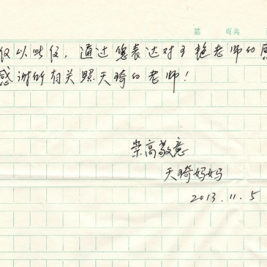 第 页共
仅以此信，通过您表达对于艳老师的感
感谢所有关照天骑的老师！
崇高敬意
天骑妈妈
2013.11.5